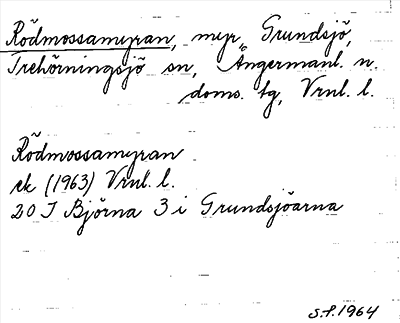 Rödmossamyran, myr, Grundsjö,
Trehörningsjö sn, Ångermanl. n.
doms. tg, Vrnl. l.
Rödmossamyran
ek (1963) Vrnl. l.
20 I Björna 3 i Grundsjöarna
S.P. 1964